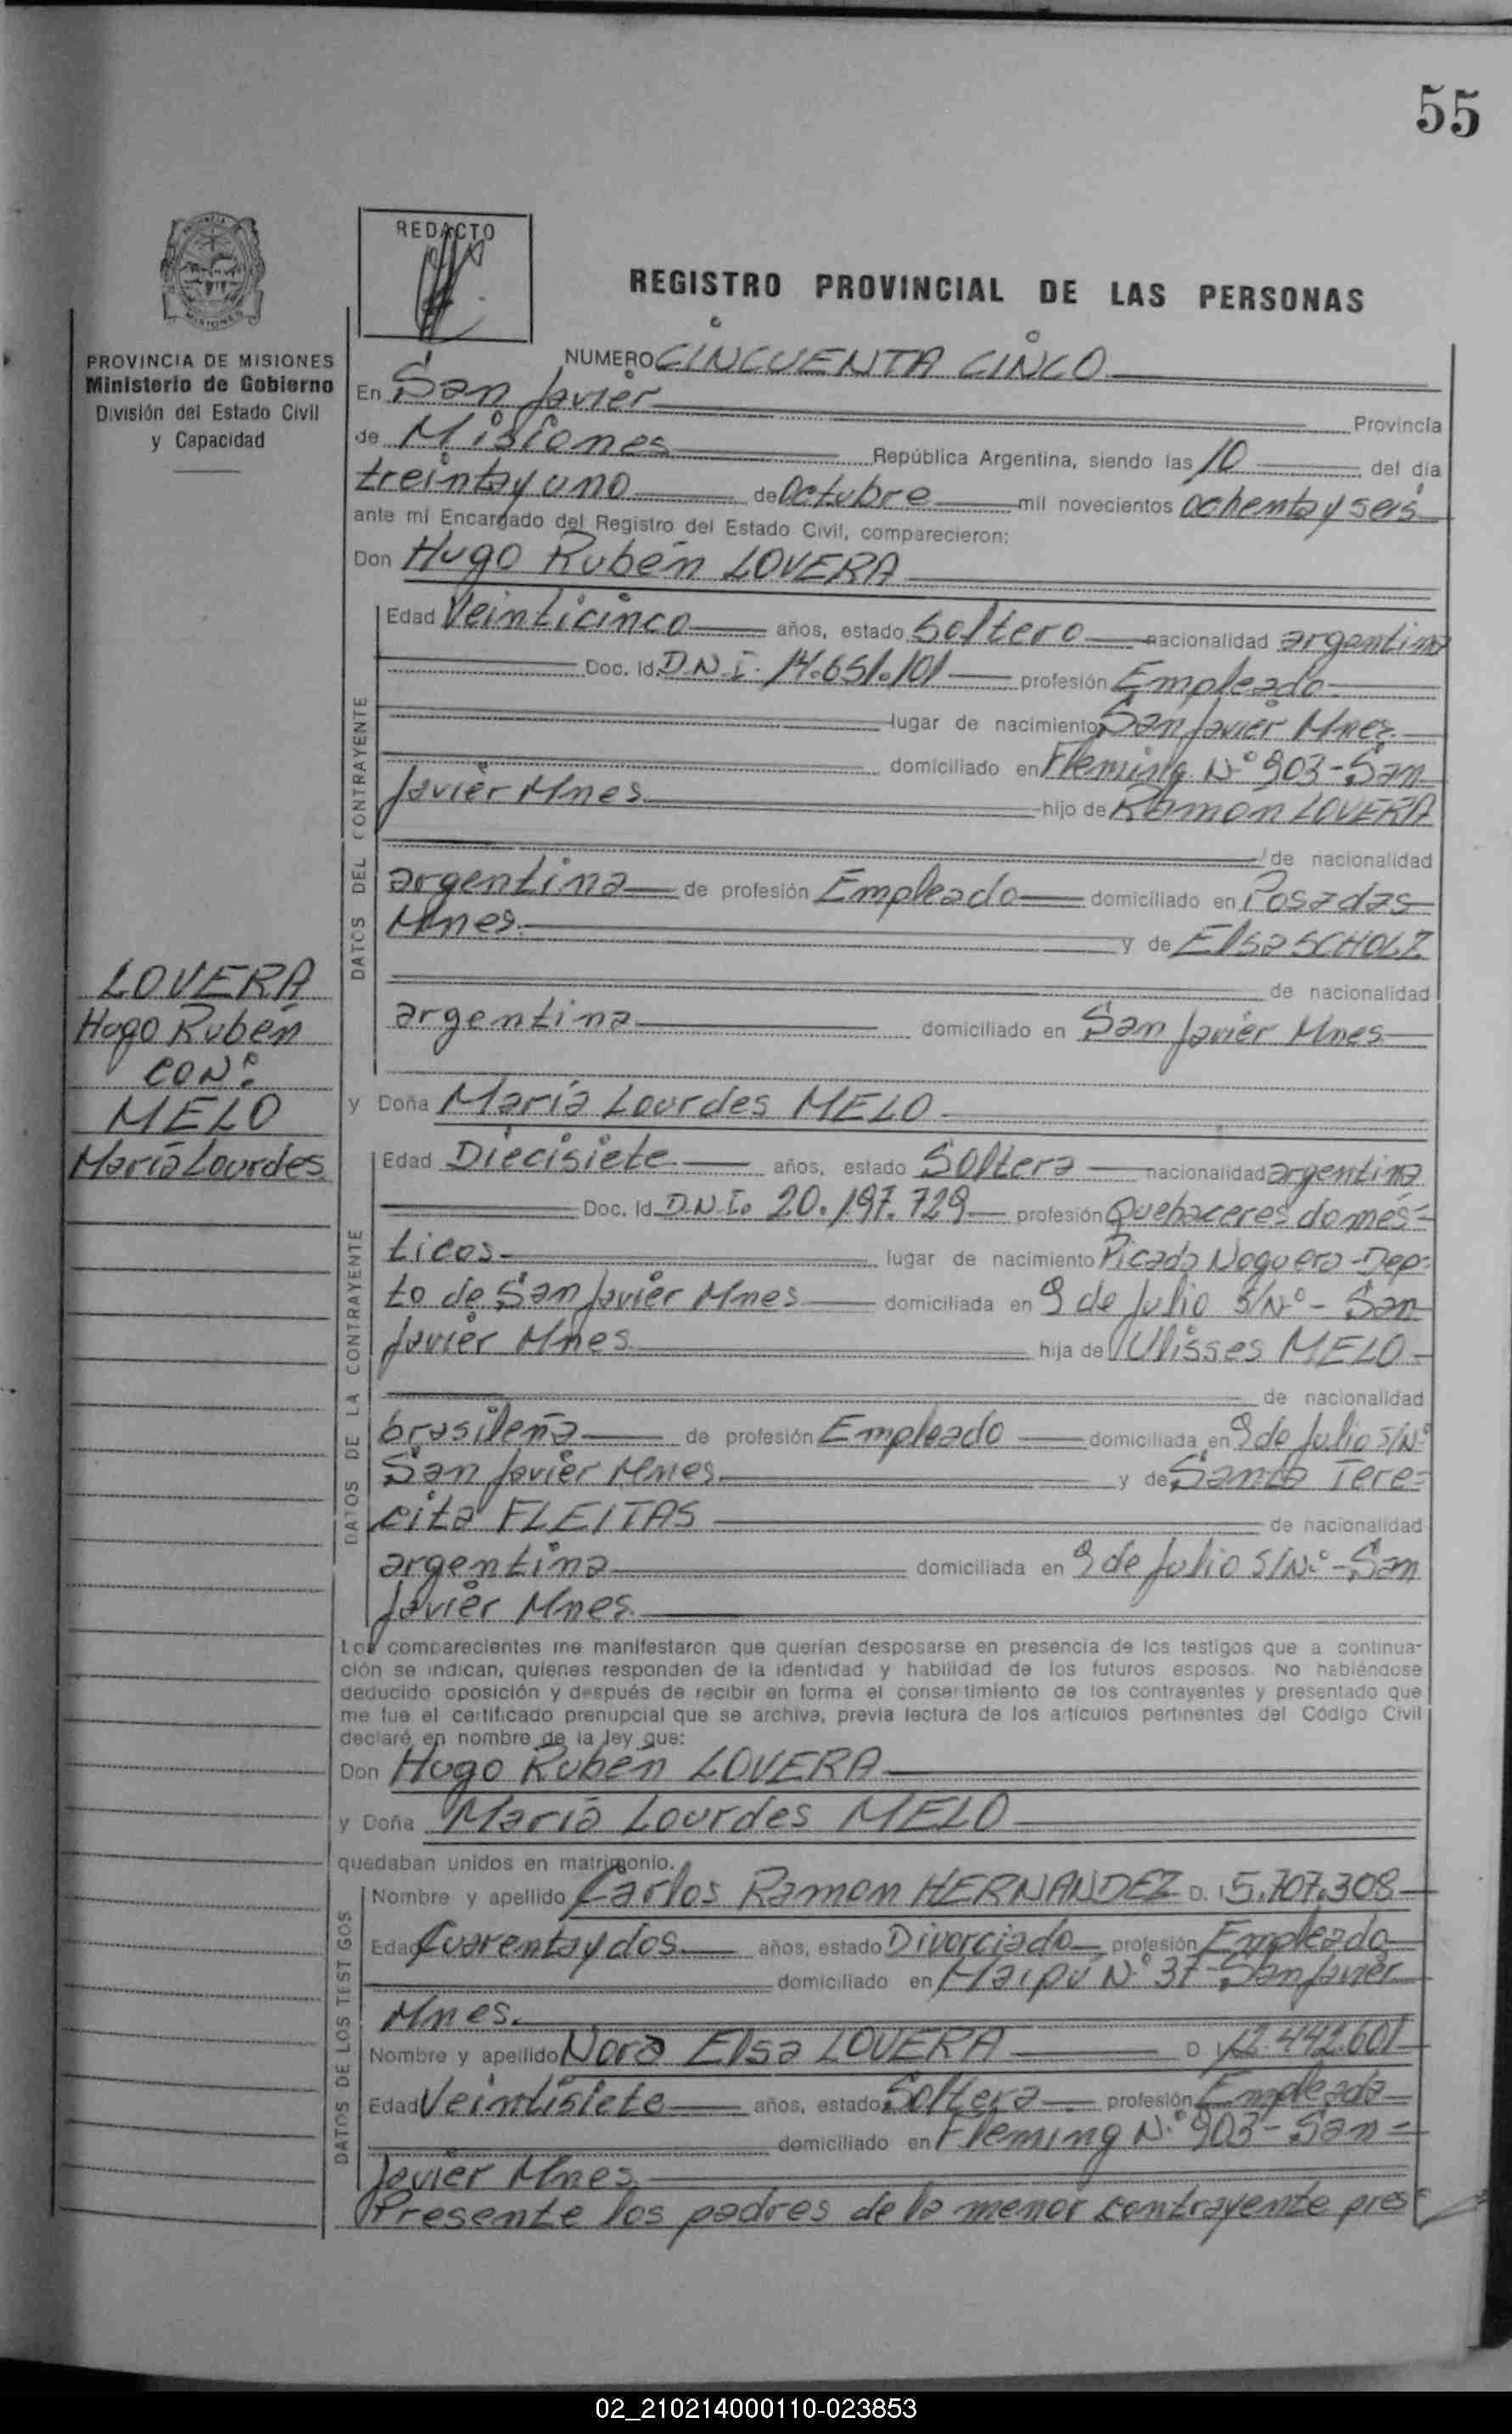 55
REDACTO
REGISTRO PROVINCIAL DE LAS PERSONAS
PROVINCIA DE MISIONES
Ministerio de Gobierno
División del Estado Civil
y Capacidad
NUMERO CINCUENTA CINCO
En San Javier Provincia
de Misiones República Argentina, siendo las 10 del día
treinta y uno de Octubre mil novecientos ochenta y seis
ante mi Encargado del Registro del Estado Civil, comparecieron:
Don Hugo Rubén LOVERA
DATOS DEL CONTRAYENTE
Edad Veinticinco años, estado Soltero nacionalidad argentina
Doc. Id. D.N.I. 14.651.101 profesión Empleado
lugar de nacimiento San Javier Mnes.
domiciliado en Fleming N° 903 - San
Javier Mnes hijo de Ramon LOVERA
de nacionalidad
argentina de profesión Empleado domiciliado en Posadas
Mnes. y de Elsa SCHOLZ
de nacionalidad
argentina domiciliado en San Javier Mnes
LOVERA
Hugo Rubén
CON:
MELO
María Lourdes
y Doña María Lourdes MELO
DATOS DE LA CONTRAYENTE
Edad Diecisiete años, estado Soltera nacionalidad argentina
Doc. Id. D.N.I. 20.197.729 profesión Quehaceres domés=
ticos lugar de nacimiento Picada Noguera - Dep=
to de San Javier Mnes domiciliada en 9 de Julio S/N° - San
Javier Mnes. hija de Ulisses MELO
de nacionalidad
brasileña de profesión Empleado domiciliada en 9 de Julio S/N°
San Javier Mnes. y de Santa Tere=
cita FLEITAS de nacionalidad
argentina domiciliada en 9 de Julio S/N° - San
Javier Mnes.
Los comparecientes me manifestaron que querían desposarse en presencia de los testigos que a continua-
ción se indican, quienes responden de la identidad y habilidad de los futuros esposos. No habiéndose
deducido oposición y después de recibir en forma el consentimiento de los contrayentes y presentado que
me fue el certificado prenupcial que se archiva, previa lectura de los artículos pertinentes del Código Civil
declaré en nombre de la ley que:
Don Hugo Rubén LOVERA
y Doña María Lourdes MELO
quedaban unidos en matrimonio.
DATOS DE LOS TESTIGOS
Nombre y apellido Carlos Ramon HERNANDEZ D. I 5.707.308
Edad Cuarenta y dos años, estado Divorciado profesión Empleado
domiciliado en Maipú N° 37 - San Javier
Mnes.
Nombre y apellido Nora Elsa LOVERA D. I 12.442.601
Edad Veintisiete años, estado Soltera profesión Empleada
domiciliado en Fleming N° 903 - San =
Javier Mnes.
Presente los padres de la menor contrayente pres=
02_210214000110-023853